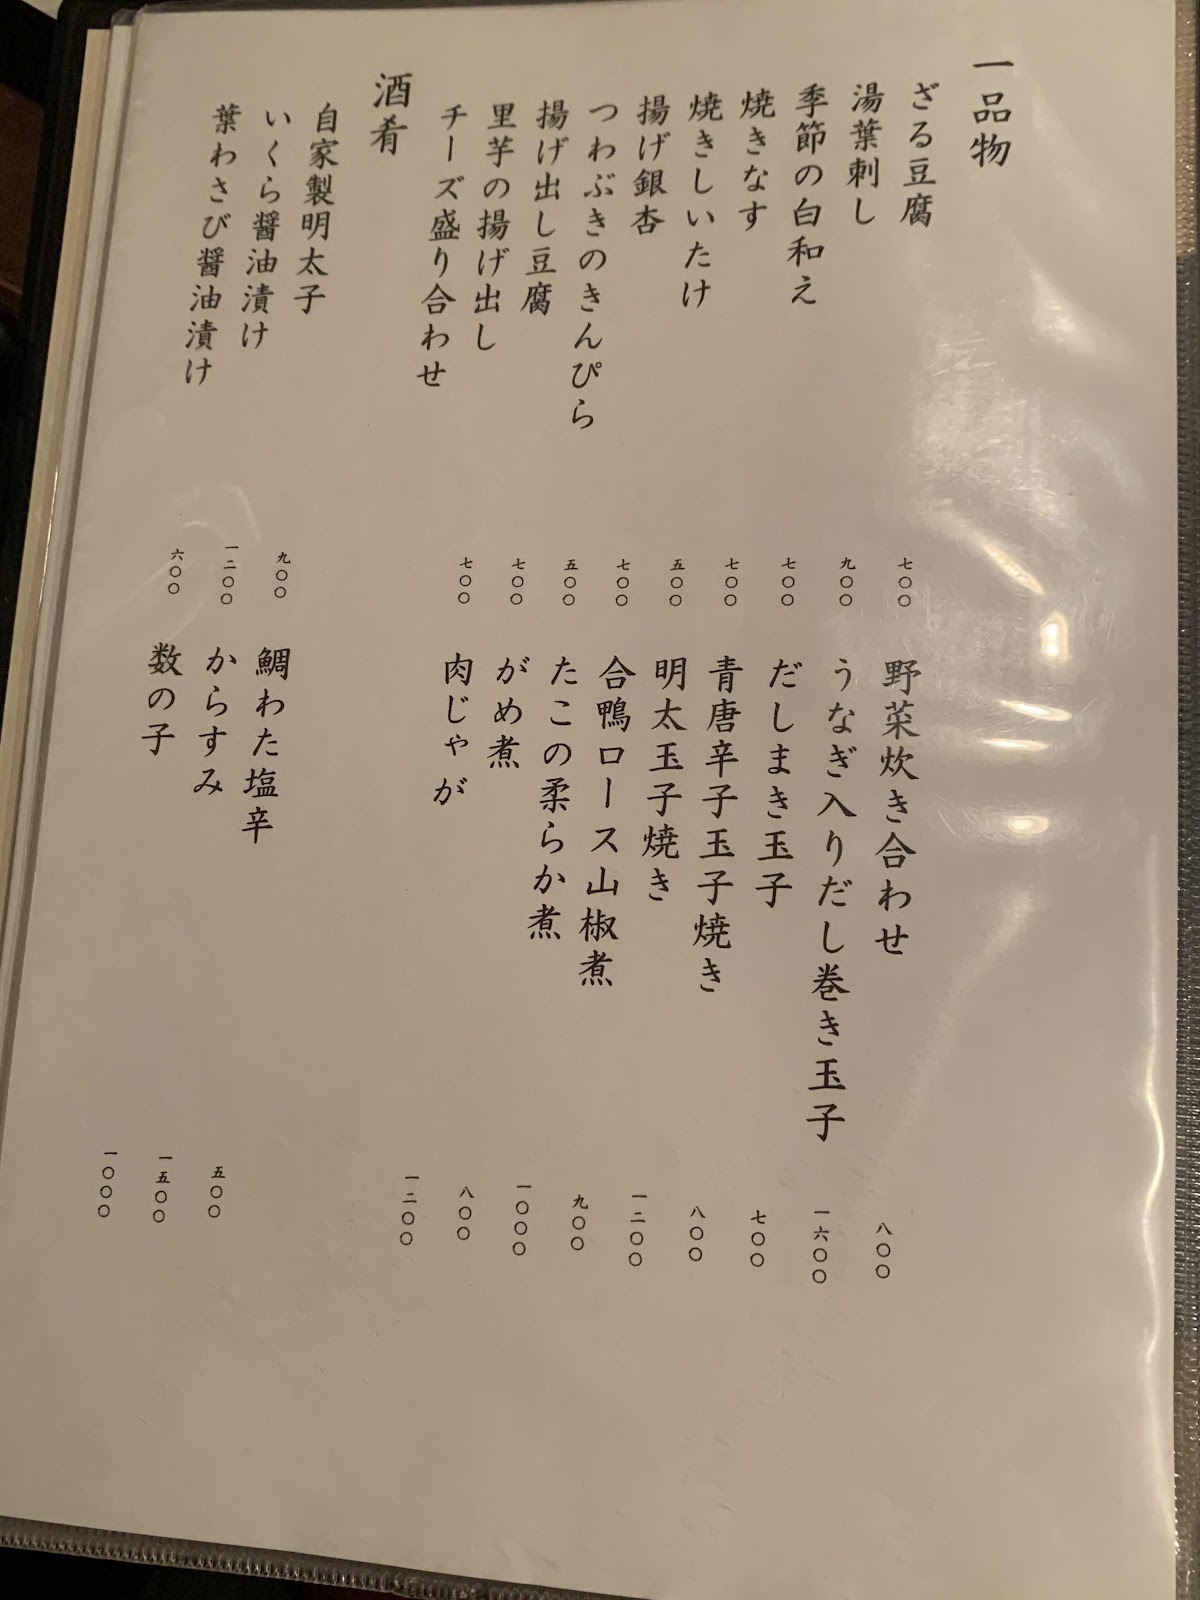 一品物
ざる豆腐 七〇〇
湯葉刺し 九〇〇
季節の白和え 七〇〇
焼きなす 七〇〇
焼きしいたけ 五〇〇
揚げ銀杏 七〇〇
つわぶきのきんぴら 五〇〇
揚げ出し豆腐 七〇〇
里芋の揚げ出し 七〇〇
チーズ盛り合わせ
野菜炊き合わせ 八〇〇
うなぎ入りだし巻き玉子 一六〇〇
だしまき玉子 七〇〇
青唐辛子玉子焼き 八〇〇
明太玉子焼き 一二〇〇
合鴨ロース山椒煮 九〇〇
たこの柔らか煮 一〇〇〇
がめ煮 八〇〇
肉じゃが 一二〇〇
酒肴
自家製明太子 九〇〇
いくら醤油漬け 一二〇〇
葉わさび醤油漬け 六〇〇
鯛わた塩辛 五〇〇
からすみ 一五〇〇
数の子 一〇〇〇